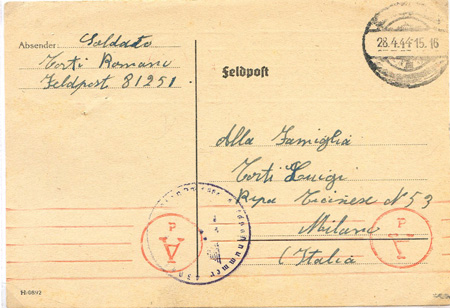 Absender: Soldato
Torti Romano
Feldpost 81251
Feldpost
28.4.44-15.16
Alla Famiglia
Torti Luigi
Ripa Ticinese N 53
Milano
(Italia
P
A
P
feldpostnummer
H-0692